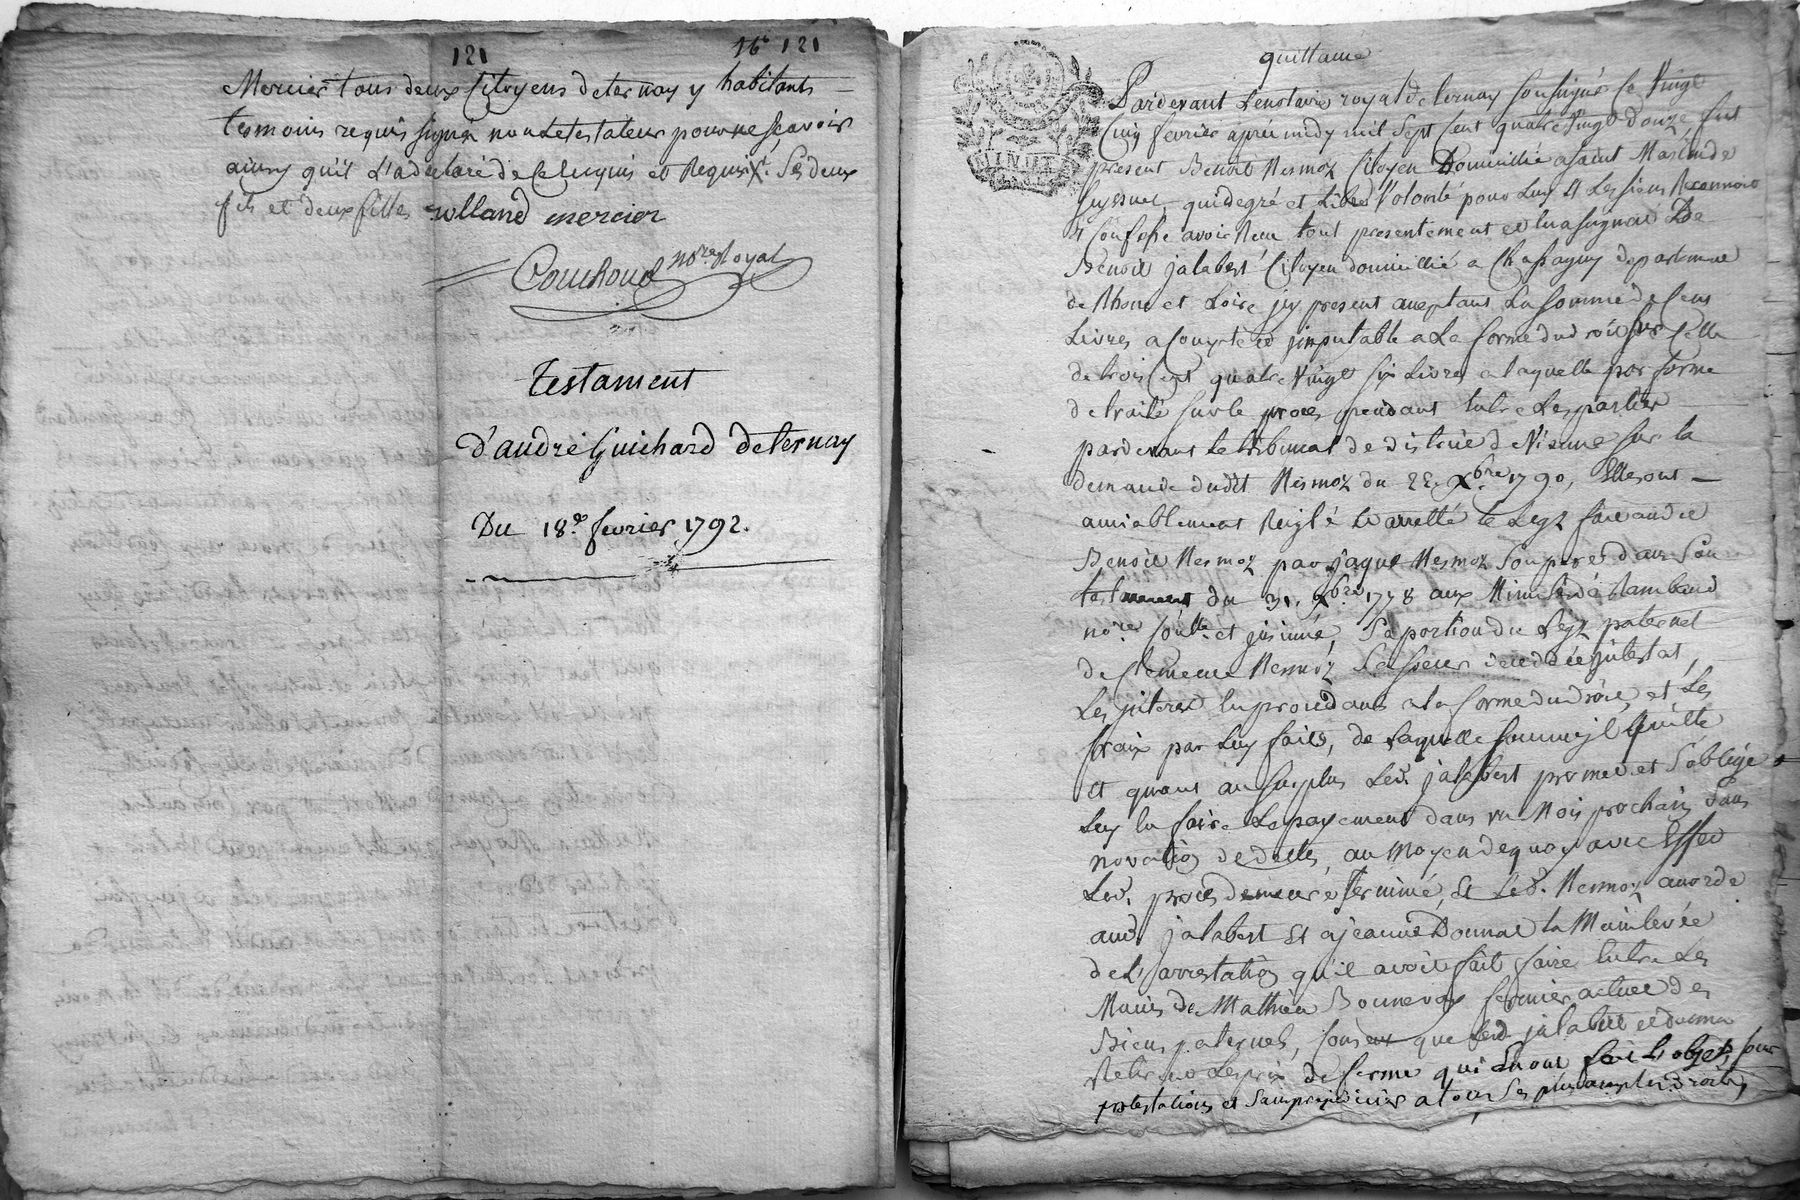 121
16e 121
Mercier tous deux Citoyens de ternay y habitants
temoins requis signés non le testateur pour ne scavoir
ainsy qu'il l'a declaré de ce enquis et Requis. Ses deux
fils et deux filles rolland mercier
Couchoud nore Royal
testament
d'andré Guichard de ternay
Du 18e fevrier 1792.
quittance
MINUTE
Pardevant Le notaire royal de ternay soussigné ce Vingt
Cinq fevrier apres midy mil Sept Cent quatre Vingt douze fut
present Benoit Nesmoz Citoyen Domicillié a saint
qui de gré et Libre Volonté pour Luy et Les siens Reconnoit
et Confesse avoir Recu tout presentement de
Benoit jalabert Citoyen domicillié a Chassagny departement
de Rhone et Loire icy present acceptant La somme de Cent
Livres a Compte et imputable a La forme du droit sur Celle
de trois Cent quatre Vingt six Livres a laquelle par forme
de traité sur le proces pendant entre Les parties
pardevant le tribunal de district de Vienne sur la
demande dudit Nesmoz du 22. Xbre 1790, Elles ont
amiablement Reiglé et arretté le Legt fait audit
Benoit Nesmoz par jaque Nesmoz Son pere dans Son
testament du 31. Xbre 1778 aux Minutes de Rambaud
nore et insinué, Sa portion du Legt paternel
de Clemence Nesmoz Sa soeur decedée intestat,
Les interet en procedans a la forme du droit, et Les
fraix par Luy faits, de laquelle somme il quitte
et quant au surplus Led. jalabert promet et S'oblige
Luy en faire Le payement dans un Mois prochain Sans
novation de dettes, au Moyen de quoy avec Effet
Led. proces demeure terminé, et Led. Nesmoz accorde
aud. jalabert et a jeanne Donnat la Mainlevée
de L'arrestation qu'il avoit fait faire entre Les
Mains de Mathieu Bonnevay fermier actuel des
Biens paternels, Consent que led jalabert et donna
Retire Les prix de ferme qui En ont fait L'objet, sur
protestations et Sans prejudicier a tous Ses plus amples droits,